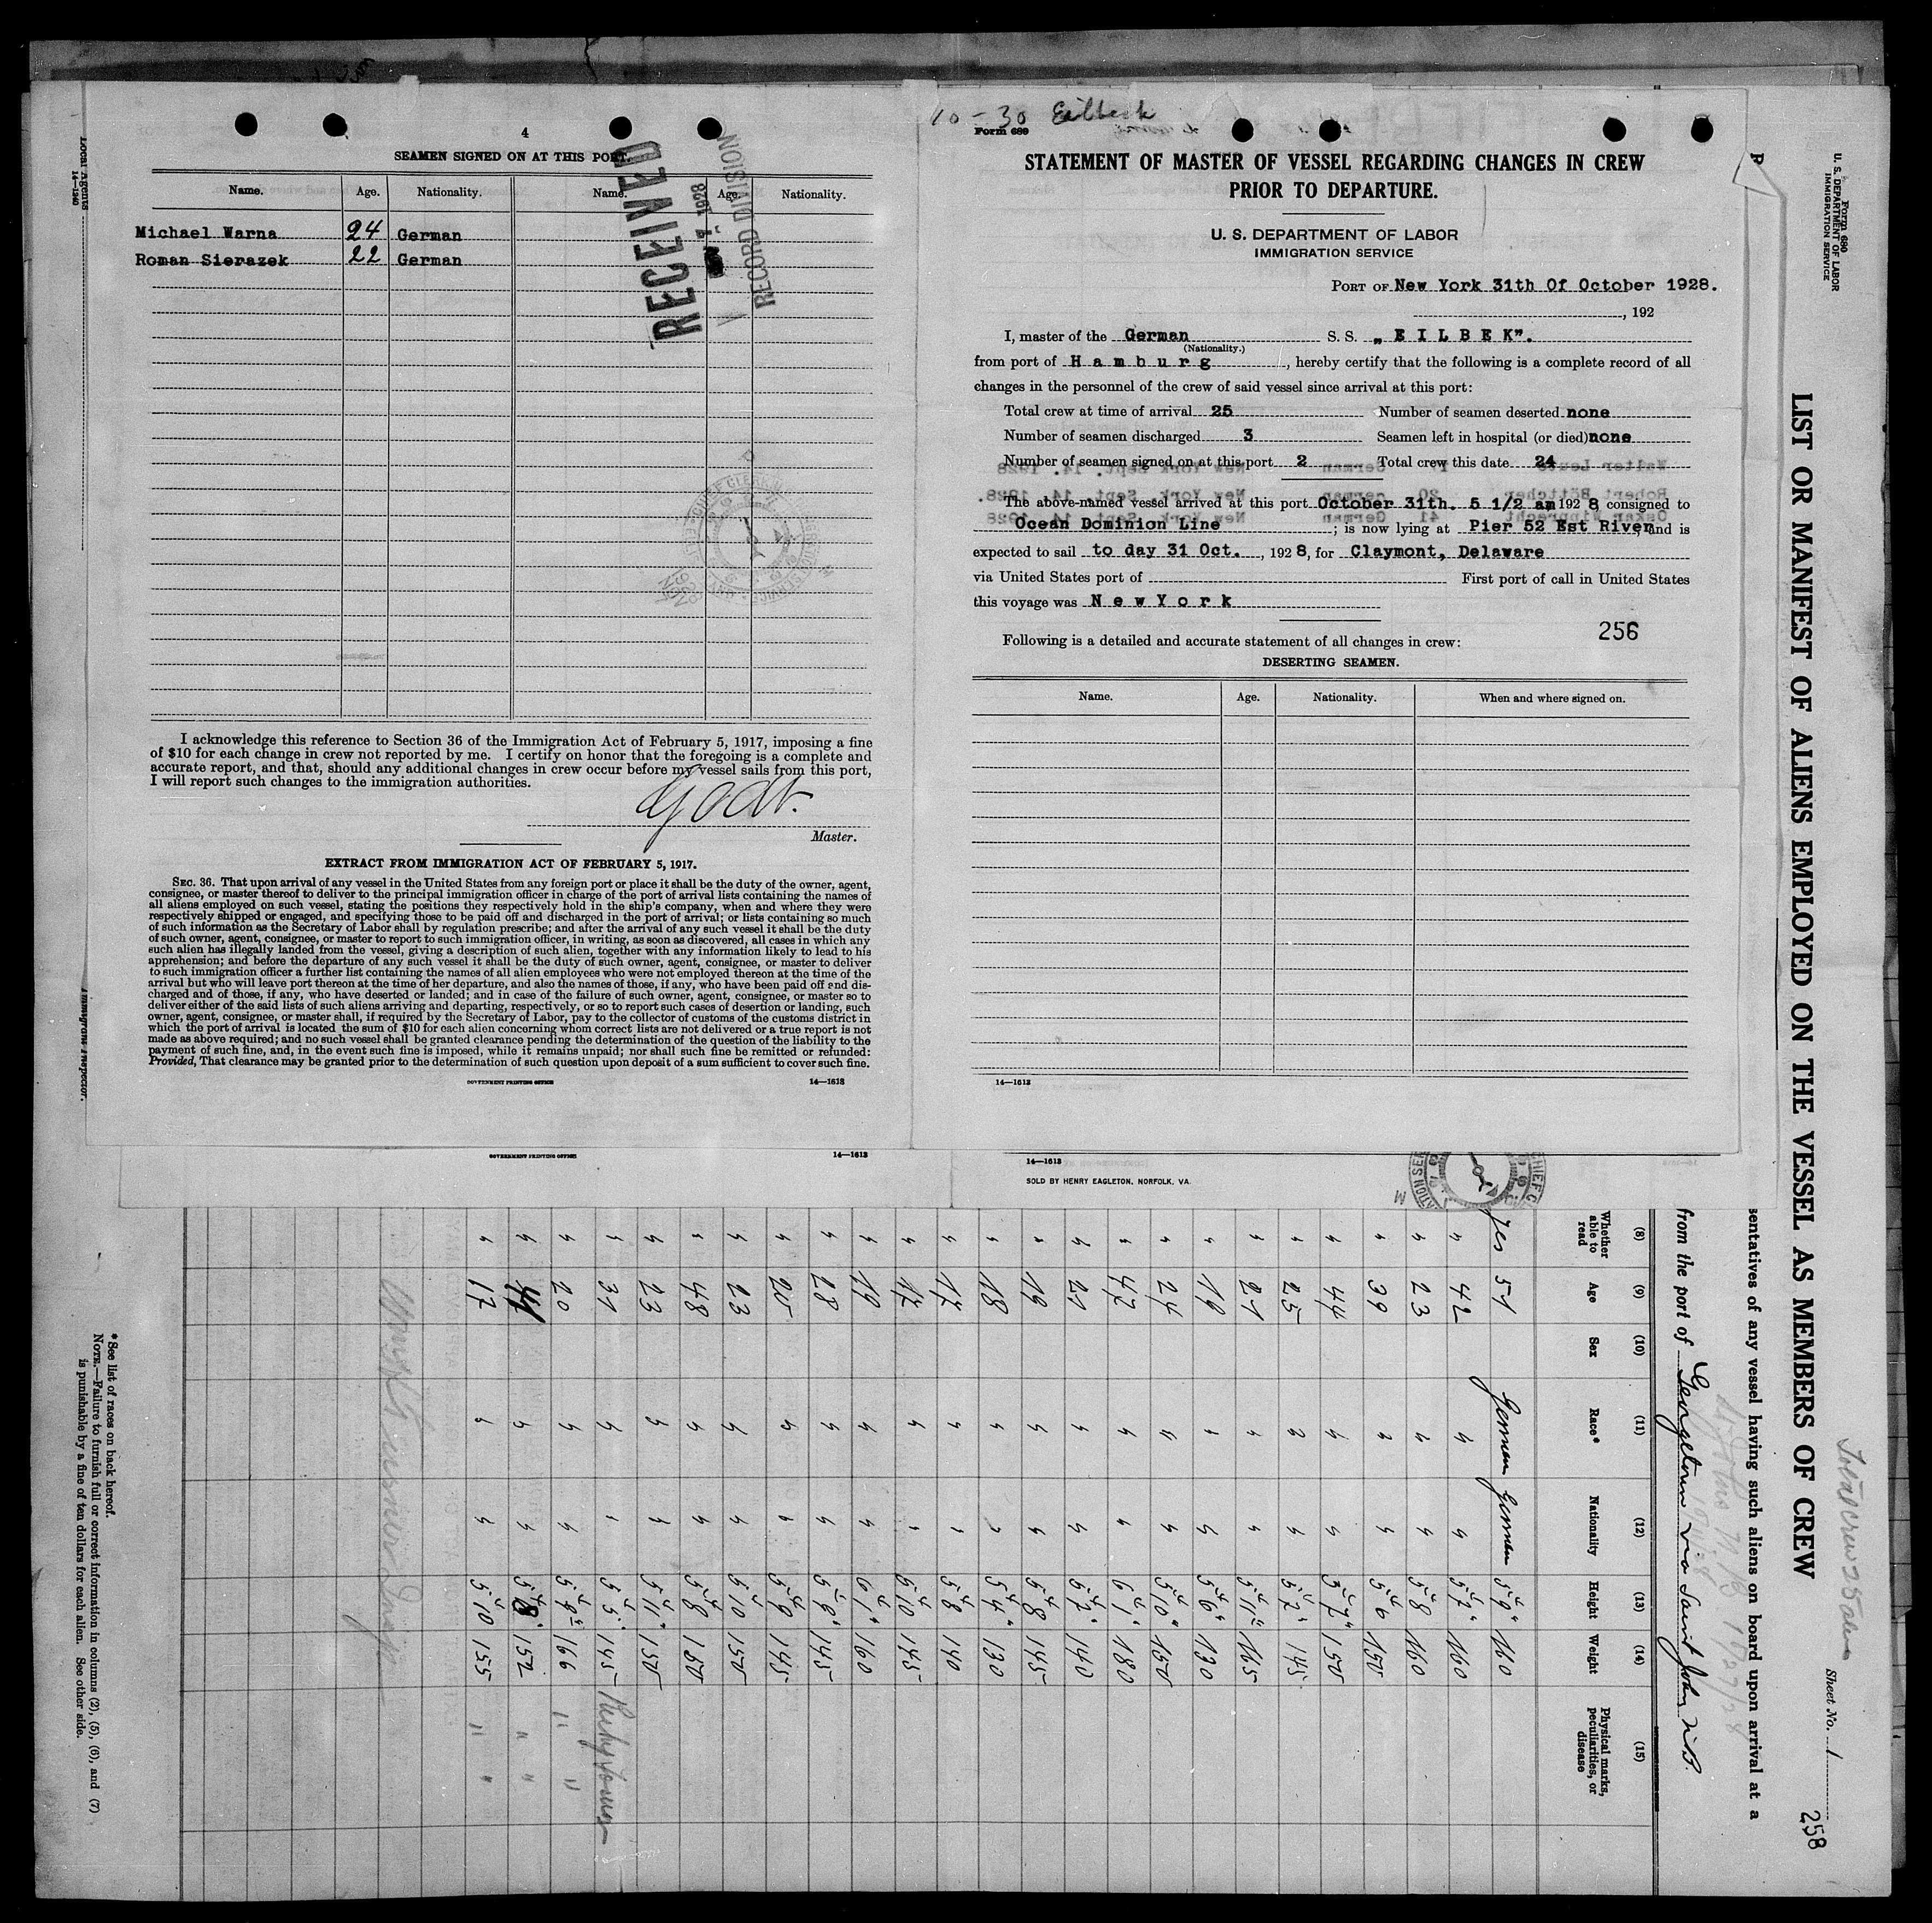 4
SEAMEN SIGNED ON AT THIS PORT.
Name. Age. Nationality. Name. Age. Nationality.
Michael Warna 24 German
Roman Sierazek 22 German
RECEIVED
1928
RECORD DIVISION
I acknowledge this reference to Section 36 of the Immigration Act of February 5, 1917, imposing a fine
of $10 for each change in crew not reported by me. I certify on honor that the foregoing is a complete and
accurate report, and that, should any additional changes in crew occur before my vessel sails from this port,
I will report such changes to the immigration authorities.
Master.
EXTRACT FROM IMMIGRATION ACT OF FEBRUARY 5, 1917.
SEC. 36. That upon arrival of any vessel in the United States from any foreign port or place it shall be the duty of the owner, agent,
consignee, or master thereof to deliver to the principal immigration officer in charge of the port of arrival lists containing the names of
all aliens employed on such vessel, stating the positions they respectively hold in the ship's company, when and where they were
respectively shipped or engaged, and specifying those to be paid off and discharged in the port of arrival; or lists containing so much
of such information as the Secretary of Labor shall by regulation prescribe; and after the arrival of any such vessel it shall be the duty
of such owner, agent, consignee, or master to report to such immigration officer, in writing, as soon as discovered, all cases in which any
such alien has illegally landed from the vessel, giving a description of such alien, together with any information likely to lead to his
apprehension; and before the departure of any such vessel it shall be the duty of such owner, agent, consignee, or master to deliver
to such immigration officer a further list containing the names of all alien employees who were not employed thereon at the time of the
arrival but who will leave port thereon at the time of her departure, and also the names of those, if any, who have been paid off and dis-
charged and of those, if any, who have deserted or landed; and in case of the failure of such owner, agent, consignee, or master so to
deliver either of the said lists of such aliens arriving and departing, respectively, or so to report such cases of desertion or landing, such
owner, agent, consignee, or master shall, if required by the Secretary of Labor, pay to the collector of customs of the customs district in
which the port of arrival is located the sum of $10 for each alien concerning whom correct lists are not delivered or a true report is not
made as above required; and no such vessel shall be granted clearance pending the determination of the question of the liability to the
payment of such fine, and, in the event such fine is imposed, while it remains unpaid; nor shall such fine be remitted or refunded:
Provided, That clearance may be granted prior to the determination of such question upon deposit of a sum sufficient to cover such fine.
GOVERNMENT PRINTING OFFICE 14—1613
10-30 Eilbeck
Form 689
STATEMENT OF MASTER OF VESSEL REGARDING CHANGES IN CREW
PRIOR TO DEPARTURE.
U. S. DEPARTMENT OF LABOR
IMMIGRATION SERVICE
PORT OF New York 31th Of October 1928.
, 192
I, master of the German S. S. „EILBEK".
(Nationality.)
from port of Hamburg, hereby certify that the following is a complete record of all
changes in the personnel of the crew of said vessel since arrival at this port:
Total crew at time of arrival 25 Number of seamen deserted none
Number of seamen discharged 3 Seamen left in hospital (or died) none
Number of seamen signed on at this port 2 Total crew this date 24
The above-named vessel arrived at this port October 31th. 5 1/2 am 1928, consigned to
Ocean Dominion Line; is now lying at Pier 52 Est River, and is
expected to sail to day 31 Oct., 1928, for Claymont, Delaware
via United States port of First port of call in United States
this voyage was NewYork
256
Following is a detailed and accurate statement of all changes in crew:
DESERTING SEAMEN.
Name. Age. Nationality. When and where signed on.
14—1613
GOVERNMENT PRINTING OFFICE 14—1613
14—1613
SOLD BY HENRY EAGLETON, NORFOLK, VA.
Form 680
U. S. DEPARTMENT OF LABOR
IMMIGRATION SERVICE
LIST OR MANIFEST OF ALIENS EMPLOYED ON THE VESSEL AS MEMBERS OF CREW
Sheet No. 1
258
sentatives of any vessel having such aliens on board upon arrival at a
from the port of Georgetown via Saint John N.B.
(8) (9) (10) (11) (12) (13) (14) (15)
Whether able to read Age Sex Race* Nationality Height Weight Physical marks, peculiarities, or disease
yes 51 German German 5'9" 160
" 42 " " 5'7" 160
" 23 " " 5'8 160
" 39 " " 5'6 150
" 44 " " 5'7" 150
" 25 " " 5'7" 145
" 21 " " 5'11" 165
" 19 " " 5'6" 130
" 24 " " 5'10" 150
" 47 " " 6'1" 180
" 21 " " 5'7" 140
" 19 " " 5'8 145
" 18 " " 5'4" 130
" 17 " " 5'8 140
" 17 " " 5'10 145
" 19 " " 6'1" 160
" 28 " " 5'9" 145
" 20 " " 5'9 145
" 23 " " 5'10 150
" 48 " " 5'8 150
" 23 " " 5'11" 150
" 31 " " 5'5" 145
" 20 " " 5'9" 166 " "
" 41 " " 5'8" 152 " "
" 17 " " 5'10 155 " "
*See list of races on back hereof.
NOTE.—Failure to furnish full or correct information in columns (2), (5), (6), and (7)
is punishable by a fine of ten dollars for each alien. See other side.
Local Agents
14—1240
Immigrant Inspector.